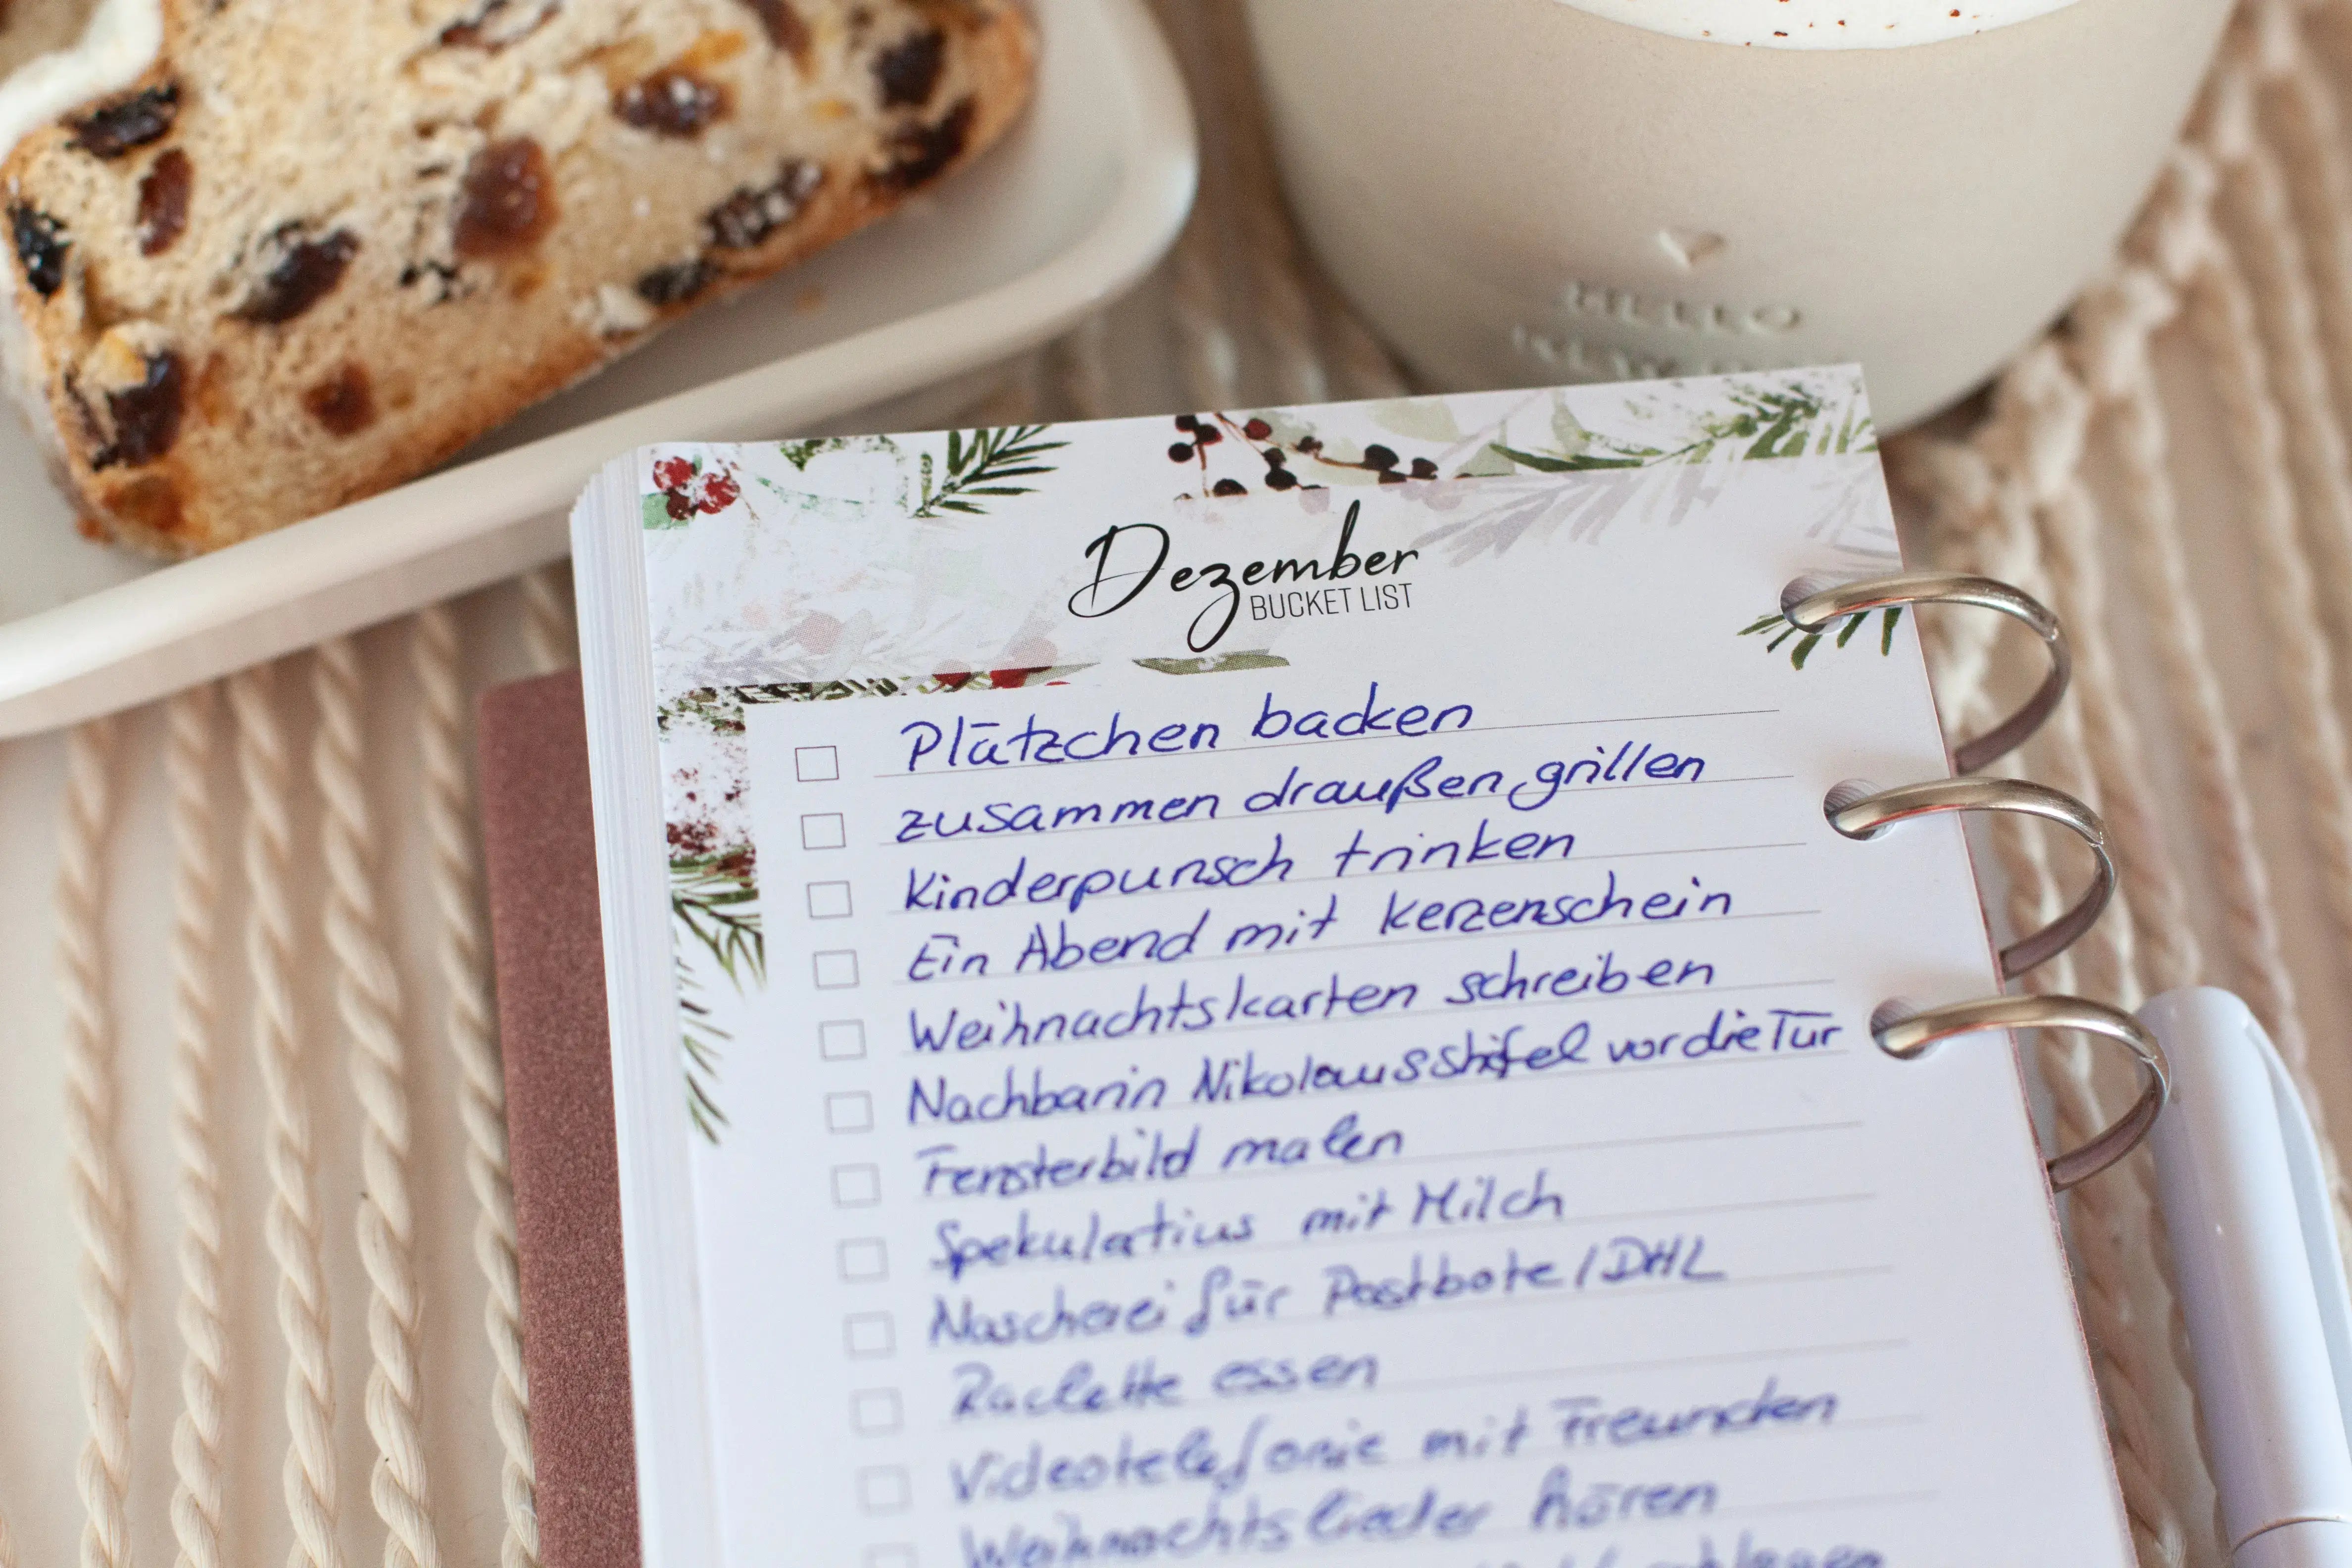 HELLO
Dezember
BUCKET LIST
Plätzchen backen
zusammen draußen grillen
Kinderpunsch trinken
Ein Abend mit Kerzenschein
Weihnachtskarten schreiben
Nachbarin Nikolausstiefel vor die Tür
Fensterbild malen
Spekulatius mit Milch
Nascherei für Postbote/DHL
Raclette essen
Videotelefonie mit Freunden
Weihnachtslieder hören